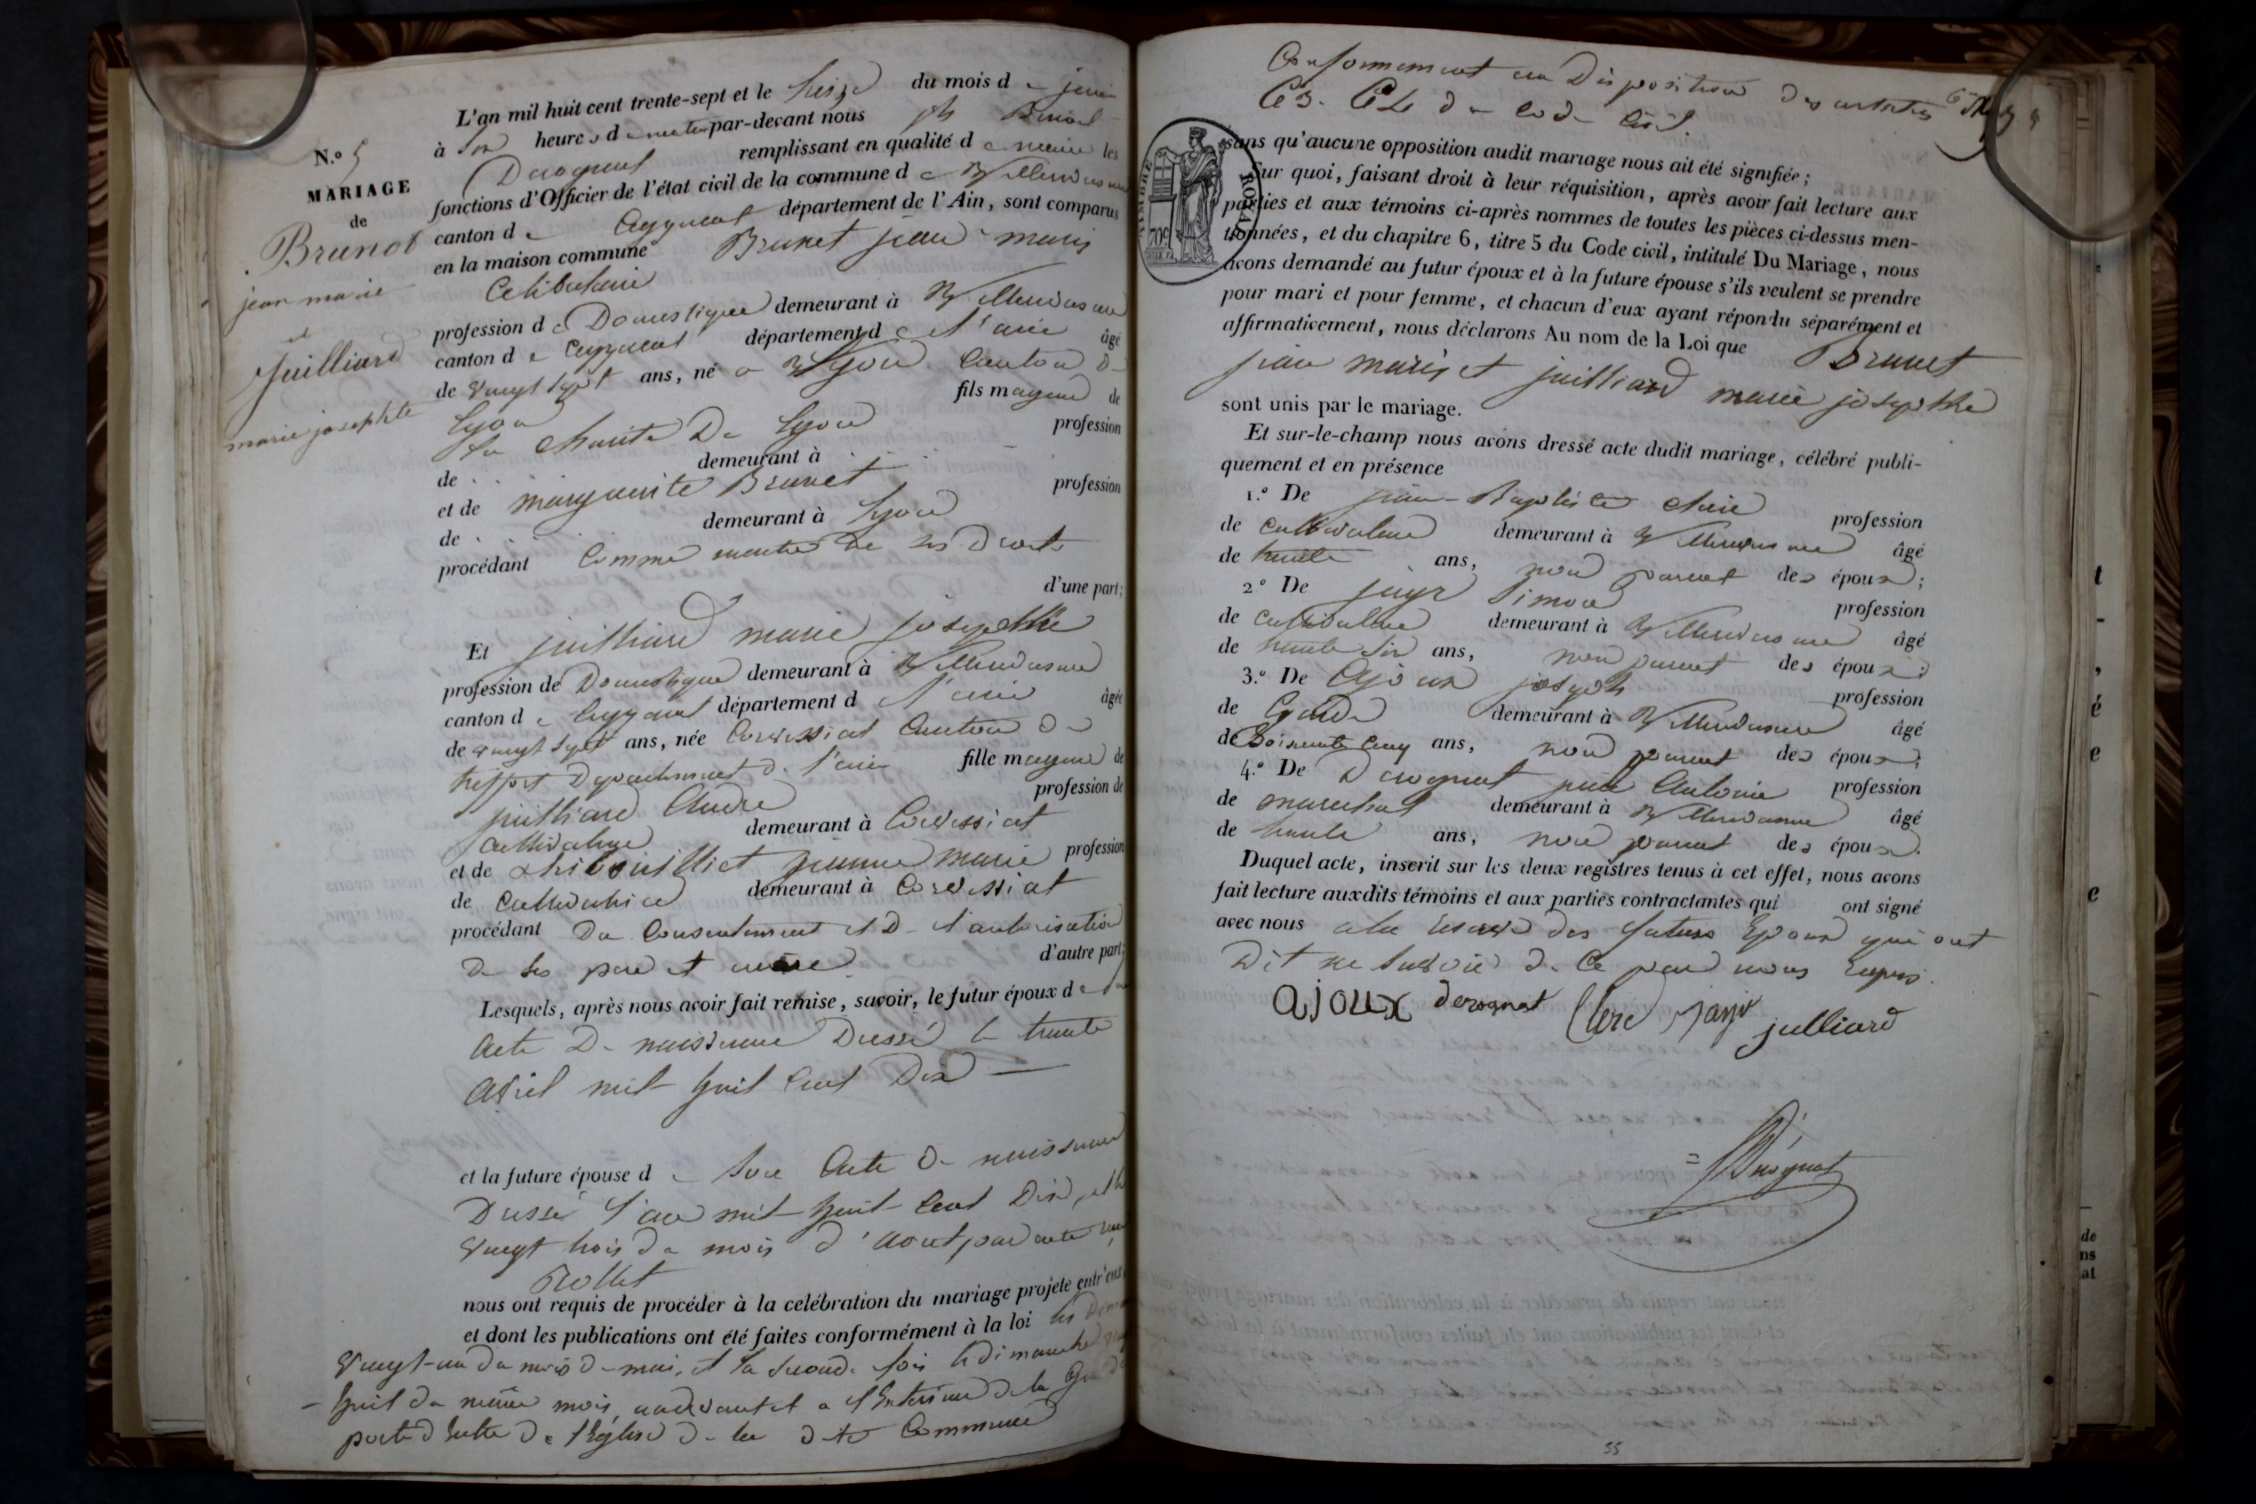 N.º 5
MARIAGE
de
Brunet
jean marie
et
Juilliard
marie josephte
L'an mil huit cent trente-sept et le seize du mois de juin
à heures du matin par-devant nous
Derognat remplissant en qualité de maire les
fonctions d'Officier de l'état civil de la commune de Villereversure
canton de Ceyzeriat département de l'Ain, sont comparus
en la maison commune Brunet jean marie
Celibataire
profession de Domestique demeurant à Villereversure
canton de Ceyzeriat département de l'ain âgé
de vingt sept ans, né a Lyon Canton de
Lyon fils majeur de
La charité De Lyon profession
de demeurant à
et de marguerite Brunet profession
de demeurant à Lyon
procédant Comme maitre de ses Droits
d'une part;
Et juilliard marie josephte
profession de Domestique demeurant à Villereversure
canton de Ceyzeriat département d l'ain âgée
de vingt sept ans, née Corvessiat Canton de
treffort Departement de l'ain fille majeure de
juilliard André profession de
Cultivateur demeurant à Corvessiat
et de jeanne marie profession
de Cultivatrice demeurant à Corvessiat
procédant Du Consentement et De l'autorisation
De ses pere et mère d'autre part;
Lesquels, après nous avoir fait remise, savoir, le futur époux de son
Acte De naissance Dressé le trente
Avril mil huit Cent Dix
et la future épouse de Son Acte de naissance
Dressé l'an mil huit Cent Dix, et le
vingt trois du mois d'Aout, par acte reçu
Rollet
nous ont requis de procéder à la celébration du mariage projeté entr'eux
et dont les publications ont été faites conformément à la loi les
vingt-un du mois de mai, et la seconde fois le dimanche vingt
huit du même mois, audevant et a l'Exterieur de la Grande
porte d'Entrée de l'Eglise de la dite Commune
Conformement au Disposition des articles
63. 64 du code Civil
sans qu'aucune opposition audit mariage nous ait été signifiée;
Sur quoi, faisant droit à leur réquisition, après avoir fait lecture aux
parties et aux témoins ci-après nommes de toutes les pièces ci-dessus men-
tionnées, et du chapitre 6, titre 5 du Code civil, intitulé Du Mariage, nous
avons demandé au futur époux et à la future épouse s'ils veulent se prendre
pour mari et pour femme, et chacun d'eux ayant répondu séparément et
affirmativement, nous déclarons Au nom de la Loi que Brunet
jean marie et juilliard marie josephte
sont unis par le mariage.
Et sur-le-champ nous avons dressé acte dudit mariage, célébré publi-
quement et en présence
1.º De jean-Baptiste Clerc profession
de Cultivateur demeurant à Villereversure âgé
de trente ans, non parent des époux;
2.º De Simon profession
de Cultivateur demeurant à Villereversure âgé
de trente six ans, non parent des époux;
3.º De Ajoux joseph profession
de Garde demeurant à Villereversure âgé
de Soixante Cinq ans, non parent des époux;
4.º De Derognat Antoine profession
de marechal demeurant à Villereversure âgé
de trente ans, non parent des époux.
Duquel acte, inscrit sur les deux registres tenus à cet effet, nous avons
fait lecture auxdits témoins et aux parties contractantes qui ont signé
avec nous a la reserve des futurs Epoux qui ont
Dit ne Savoir de Ce par nous requis.
ajoux derognat Clerc julliard
Derognat
TIMBRE ROYAL
70c
55